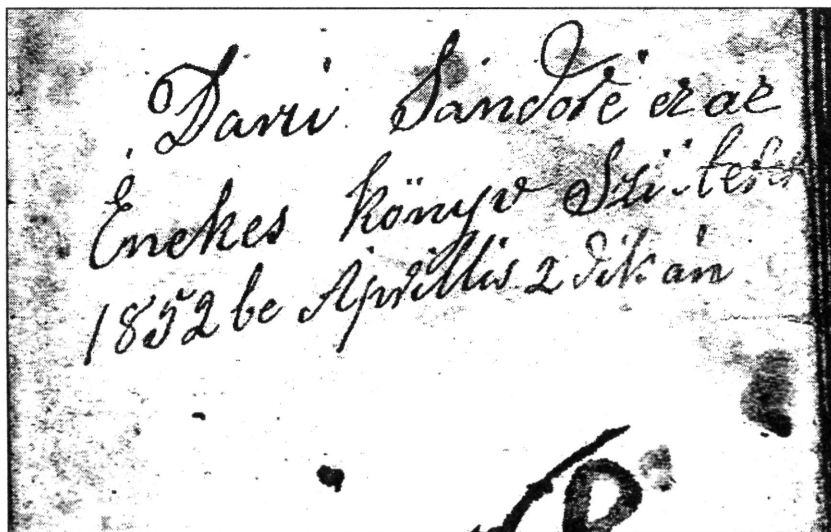 Davii Sándoré ez az
Énekes könyv Született
1852 be Áprillis 2 dikán
P